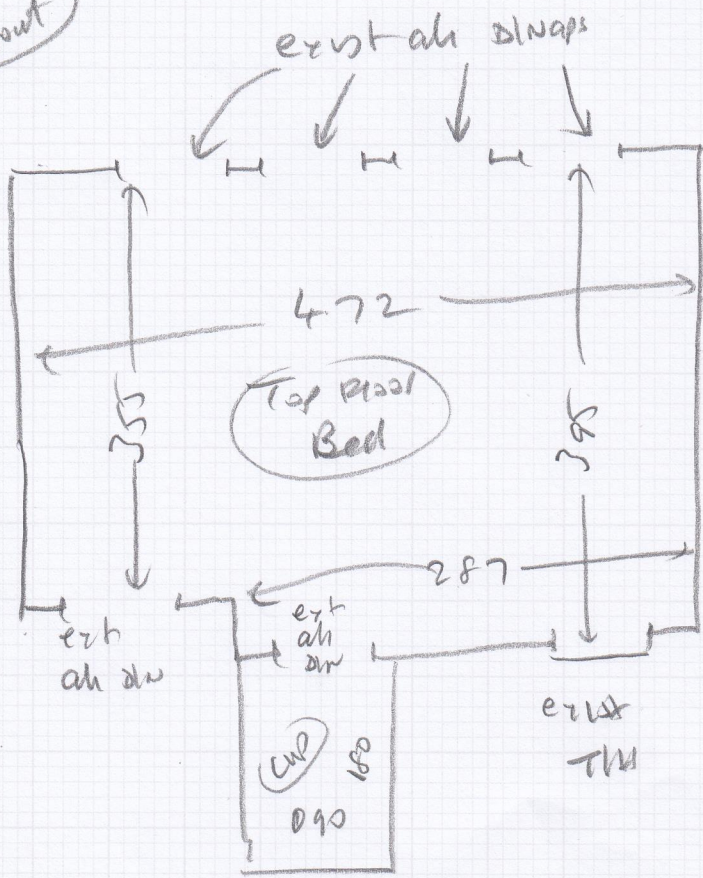 out
exist ali D/Naps
4.72
355
Top Floor
Bed
395
287
ext
ali D/N
ext
ali
D/N
exist
T/H
CUP
180
090